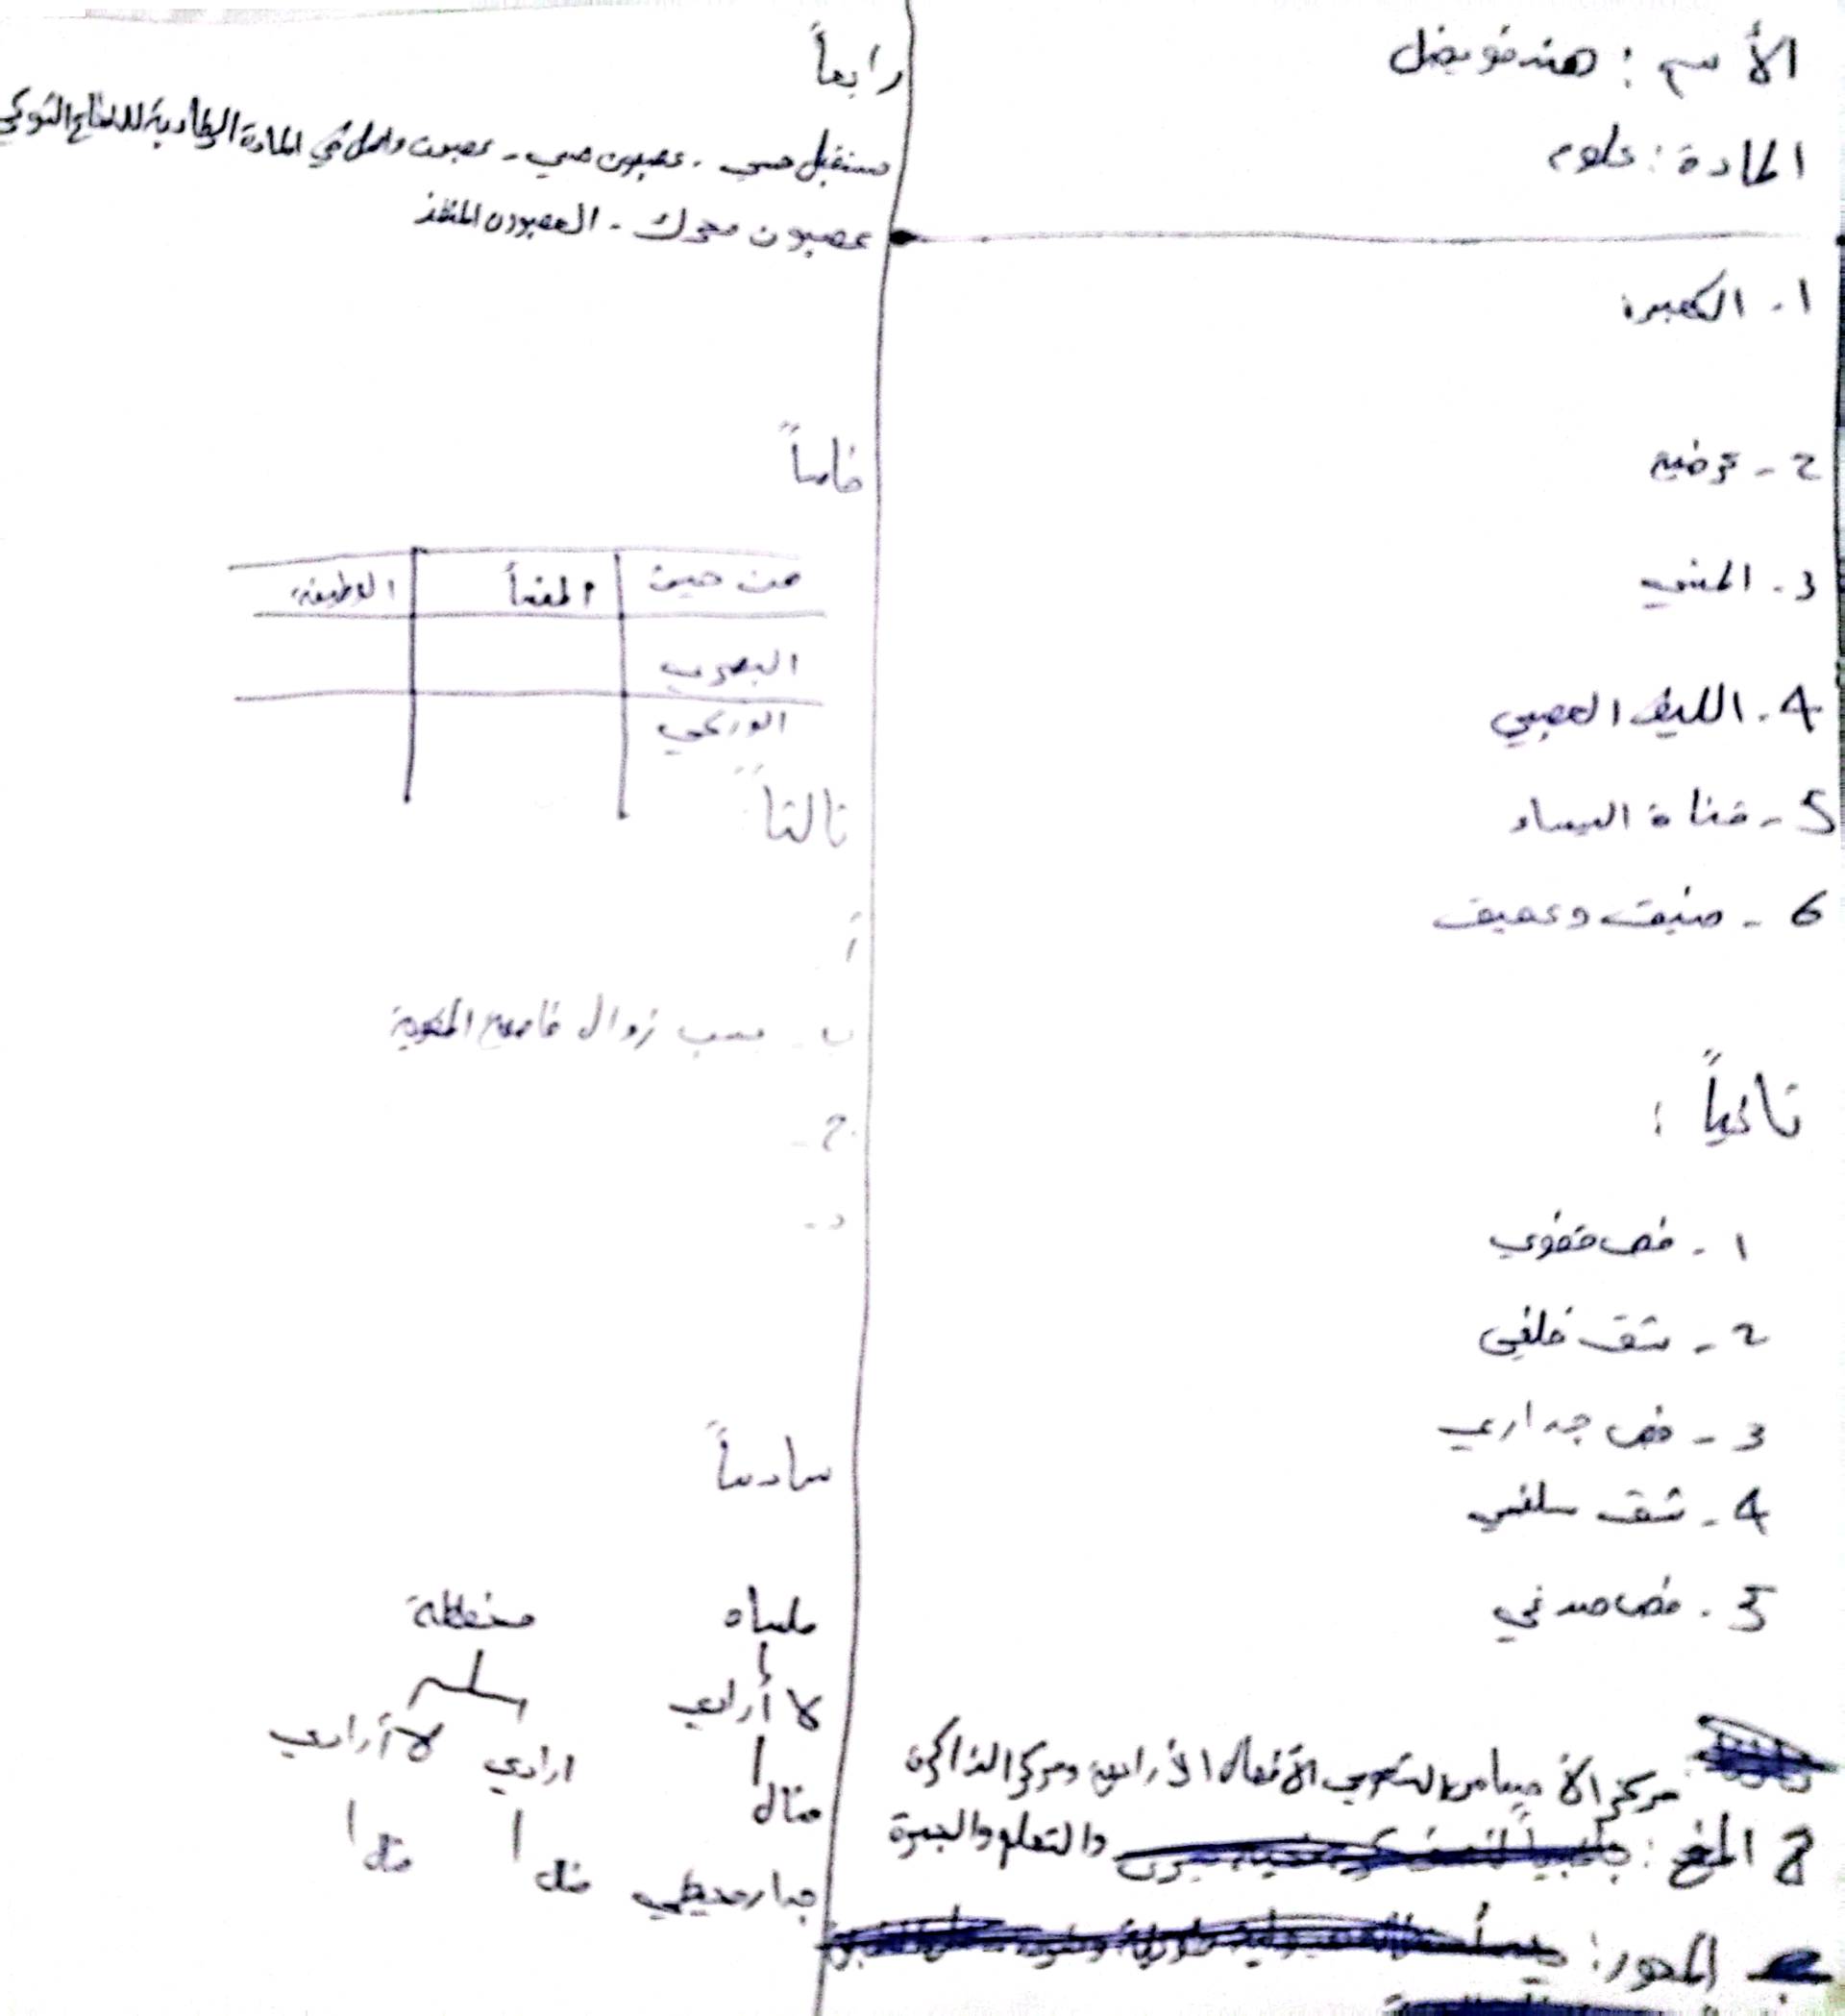 الأسم : هند فويضل
المادة : علوم
١ - الكعبرة
2 - عرضية
3 - المنصف
4 - الليف العصبي
5 - قناة السيساء
6 - ضيق وعميق
ثانياً :
١ - فص قفوي
2 - شق خلفي
3 - فص جداري
4 - شق سلفي
5 - فص صدغي
مركز الأحساس الشعوري الأفعال الأرادية ومركز الذاكرة
المخ : والتعلم والخبرة
المحور :
رابعاً
مستقبل حسي - عصبون حسي - عصبون واصل في المادة الرمادية للنخاع الشوكي
عصبون محرك - العصبون المنفذ
خامساً
من حيث المنشأ الوظيفة
البصري
الوركي
ثالثاً
أ
ب - بسبب زوال خاصية
ح -
د -
سادساً
ملساء مخططة
لا أرادي ارادي لا أرادي
مثال
مثال مثال